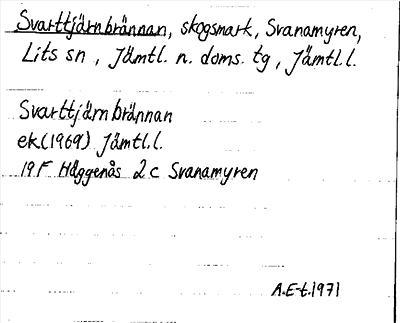 Svarttjärnbrännan, skogsmark, Svanamyren,
Lits sn, Jämtl. n. doms. tg, Jämtl.l.
Svarttjärnbrännan
ek(1969) Jämtl.l.
19F Häggenås 2c Svanamyren
A.E-t.1971